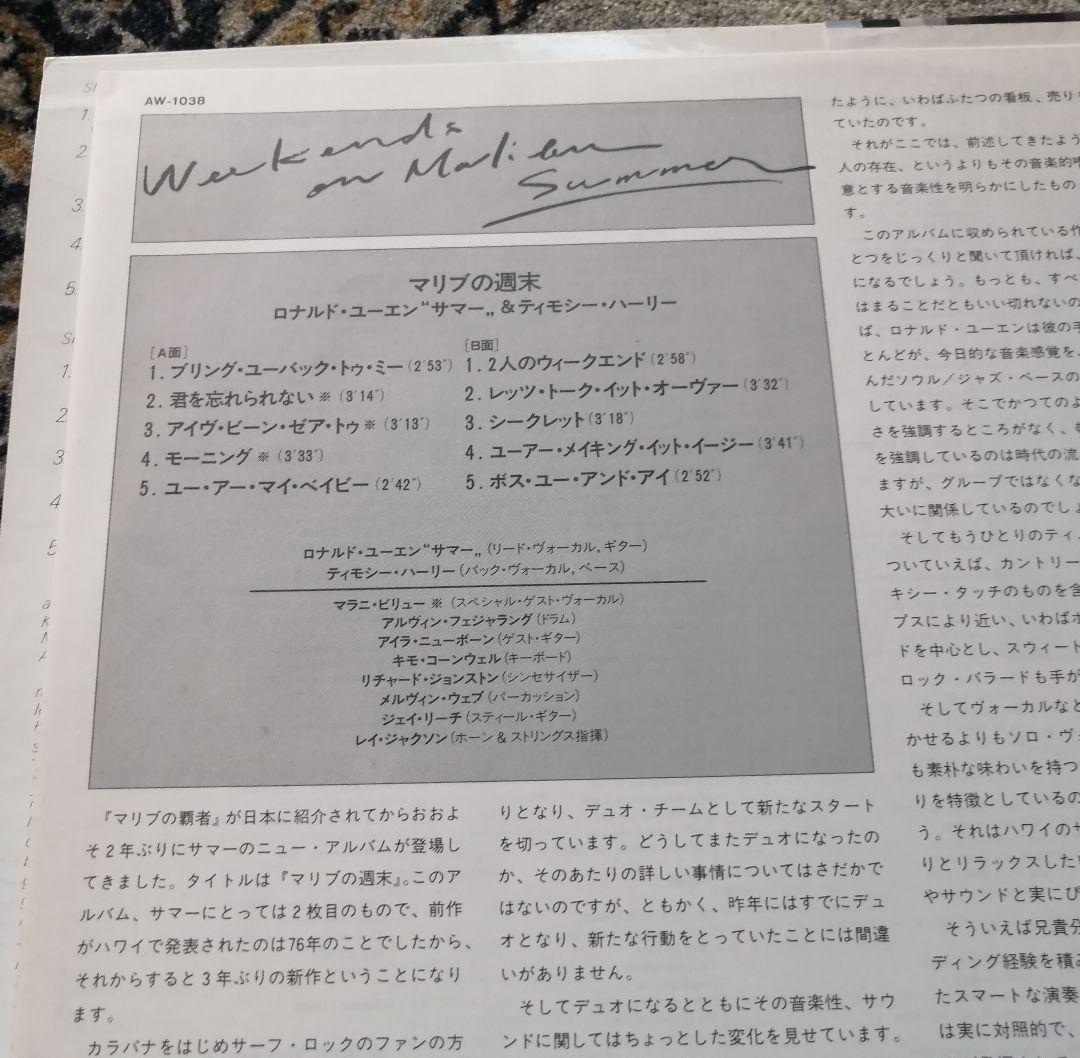 AW-1038
Weekends
on Malibu
Summer
マリブの週末
ロナルド・ユーエン“サマー„&ティモシー・ハーリー
[A面]
1. ブリング・ユーバック・トゥ・ミー(2′53″)
2. 君を忘れられない※(3′14″)
3. アイヴ・ビーン・ゼア・トゥ※(3′13″)
4. モーニング※(3′33″)
5. ユー・アー・マイ・ベイビー(2′42″)
[B面]
1. 2人のウィークエンド(2′58″)
2. レッツ・トーク・イット・オーヴァー(3′32″)
3. シークレット(3′18″)
4. ユーアー・メイキング・イット・イージー(3′41″)
5. ボス・ユー・アンド・アイ(2′52″)
ロナルド・ユーエン“サマー„(リード・ヴォーカル,ギター)
ティモシー・ハーリー(バック・ヴォーカル,ベース)
マラニ・ビリュー※(スペシャル・ゲスト・ヴォーカル)
アルヴィン・フェジャラング(ドラム)
アイラ・ニューボーン(ゲスト・ギター)
キモ・コーンウェル(キーボード)
リチャード・ジョンストン(シンセサイザー)
メルヴィン・ウェブ(パーカッション)
ジェイ・リーチ(スティール・ギター)
レイ・ジャクソン(ホーン&ストリングス指揮)
『マリブの覇者』が日本に紹介されてからおおよ
そ2年ぶりにサマーのニュー・アルバムが登場し
てきました。タイトルは『マリブの週末』。このア
ルバム、サマーにとっては2枚目のもので、前作
がハワイで発表されたのは76年のことでしたから、
それからすると3年ぶりの新作ということになり
ます。
カラパナをはじめサーフ・ロックのファンの方
りとなり、デュオ・チームとして新たなスタート
を切っています。どうしてまたデュオになったの
か、そのあたりの詳しい事情についてはさだかで
はないのですが、ともかく、昨年にはすでにデュ
オとなり、新たな行動をとっていたことには間違
いがありません。
そしてデュオになるとともにその音楽性、サウ
ンドに関してはちょっとした変化を見せています。
たように、いわばふたつの看板、売り
ていたのです。
それがここでは、前述してきたよう
人の存在、というよりもその音楽的
意とする音楽性を明らかにしたもの
す。
このアルバムに収められている作
とつをじっくりと聞いて頂ければ、
になるでしょう。もっとも、すべ
はまることだともいい切れないの
ば、ロナルド・ユーエンは彼の手
とんどが、今日的な音楽感覚を
んだソウル／ジャズ・ベースの
しています。そこでかつてのよ
さを強調するところがなく、
を強調しているのは時代の流
ますが、グループではなくな
大いに関係しているのでしょ
そしてもうひとりのティ
ついていえば、カントリー
キシー・タッチのものを含
プスにより近い、いわばポ
ドを中心とし、スウィート
ロック・バラードも手が
そしてヴォーカルなど
かせるよりもソロ・ヴ
も素朴な味わいを持つ
りを特徴としているの
う。それはハワイのサ
りとリラックスした
やサウンドと実にぴ
そういえば兄貴分
ディング経験を積
たスマートな演奏
は実に対照的で、
1.
2.
3.
4.
5.
1.
2.
3
4
5